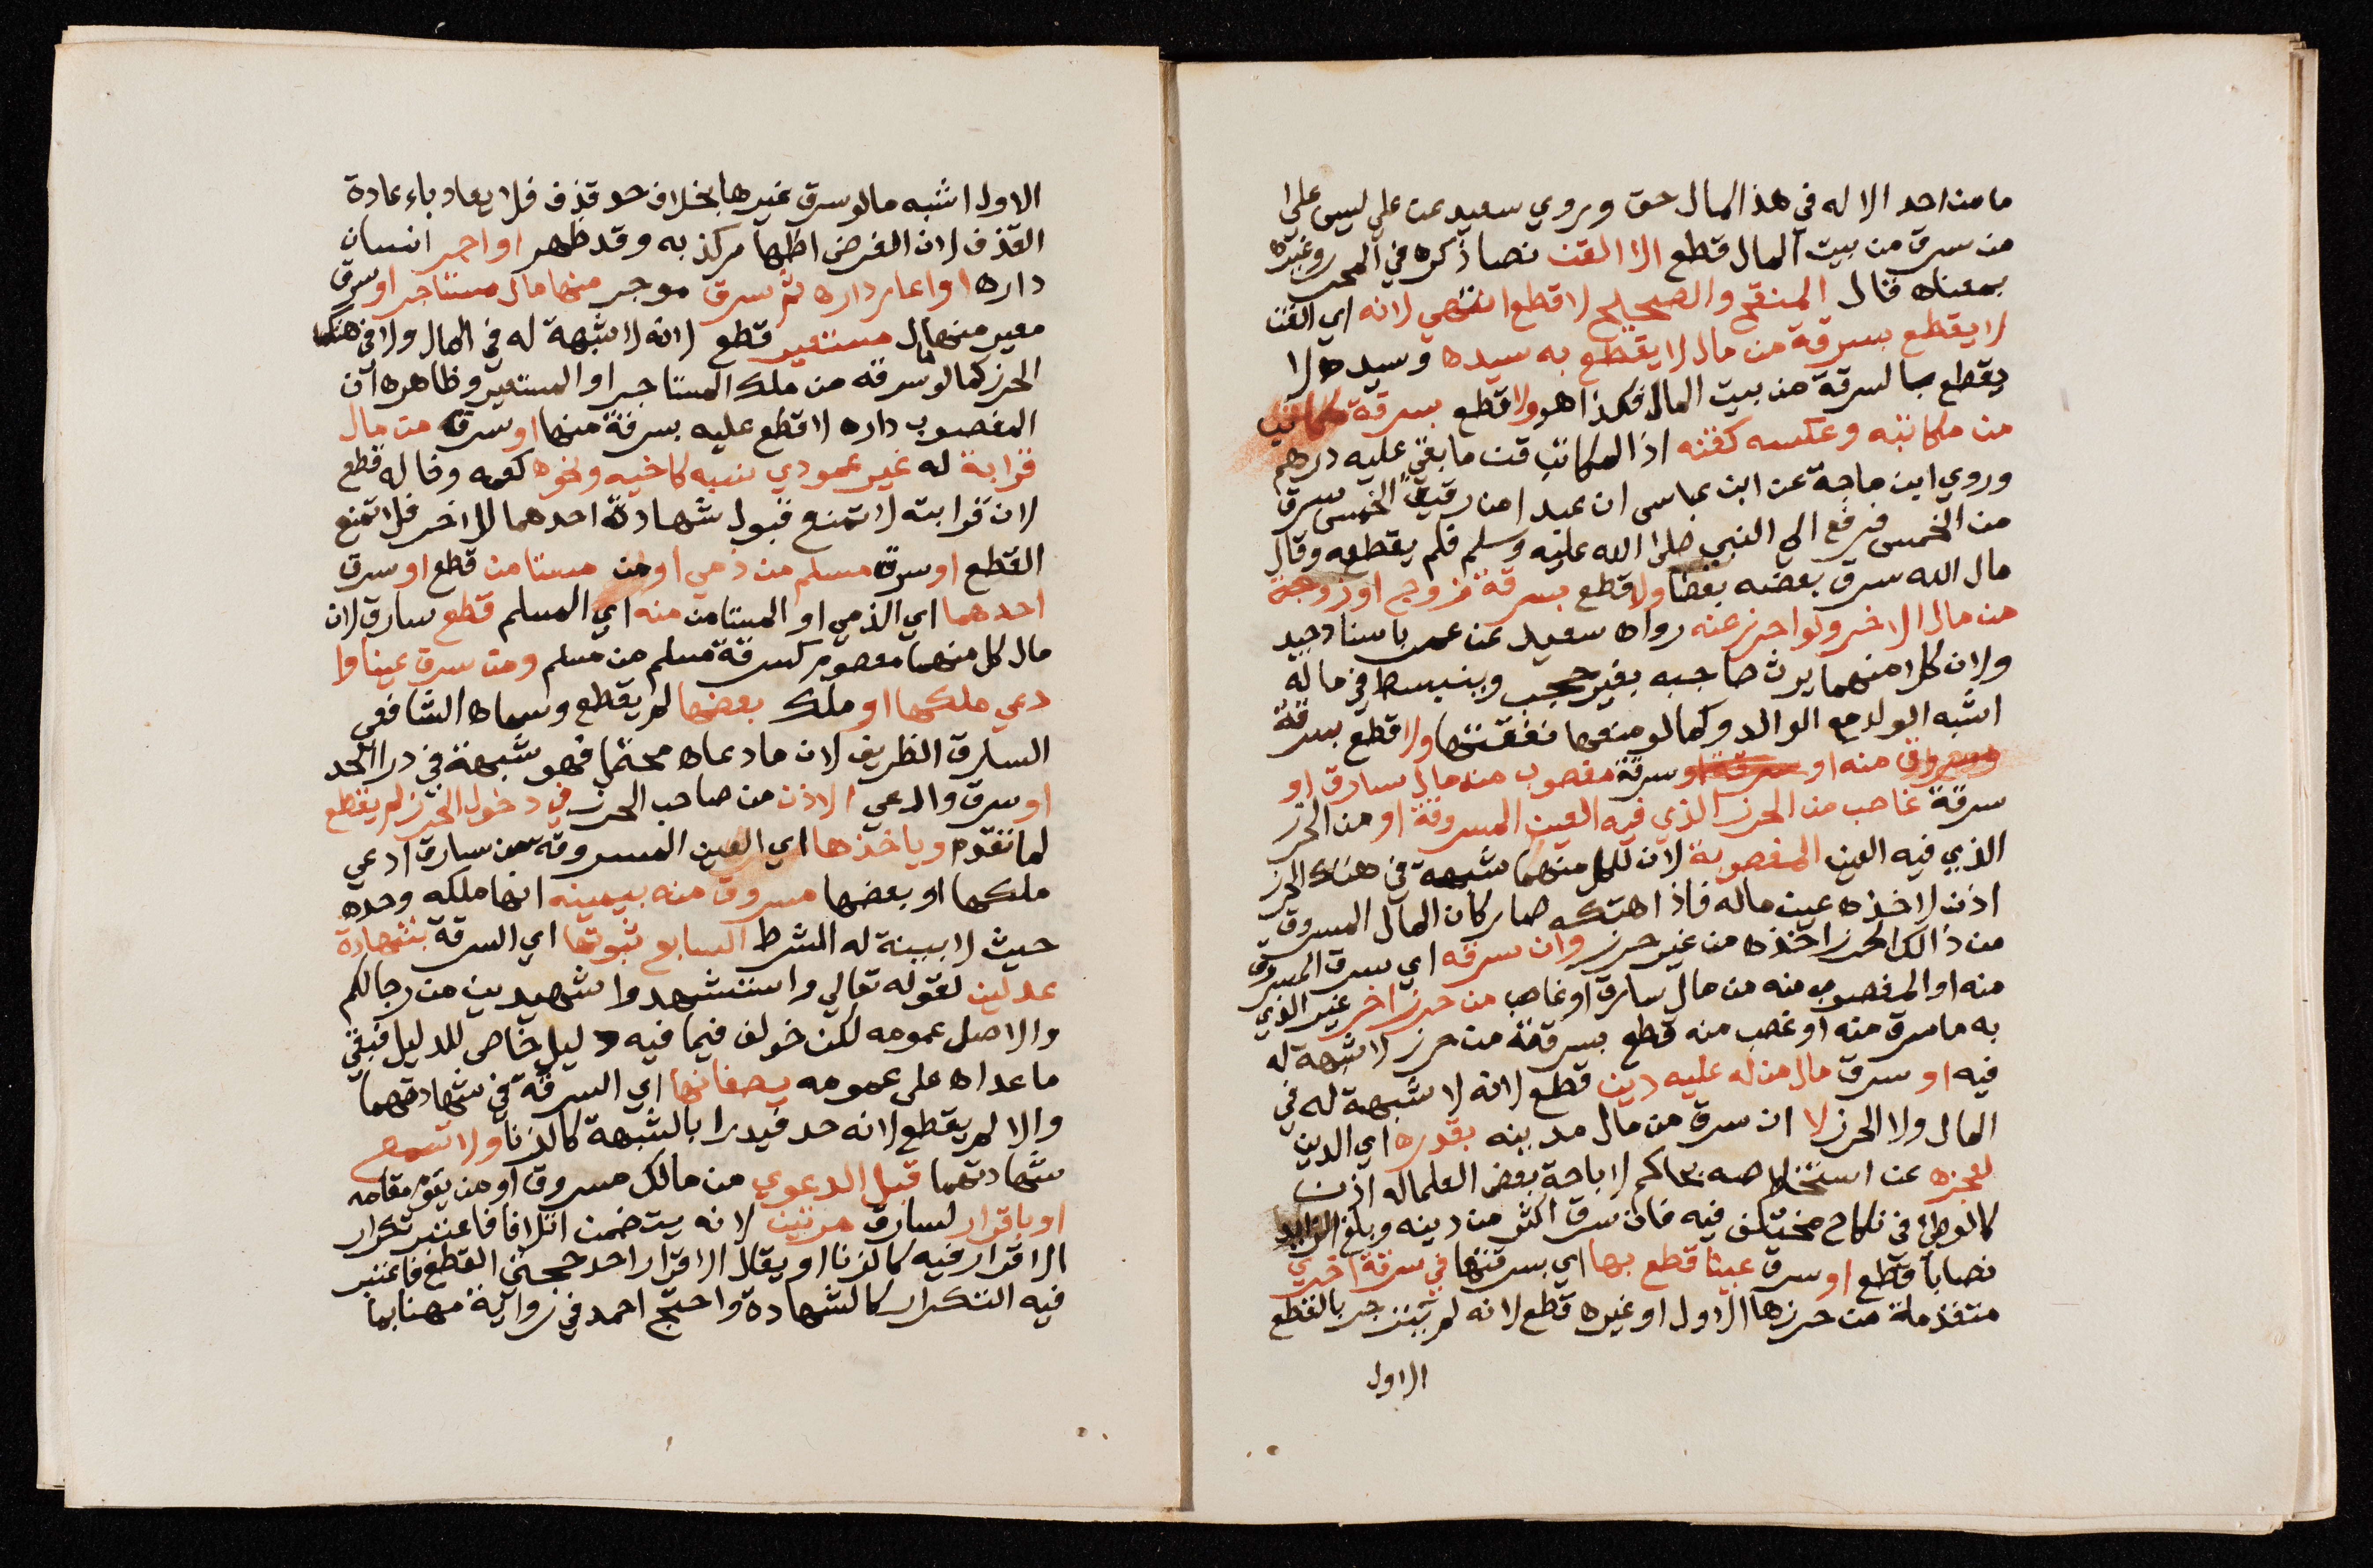 ما من احد الا له في هذ المال حق وروي سعيد عن علي ليس علي
من سرق من بيت المال قطع الا القن نصا ذكره في المحرر وغيره
بمعناه قال المنقح والصحيح لا قطع انتهي لانه اي القن
لا يقطع بسرقة من مال لا يقطع به سيده وسيده لا
يقطع بالسرقة من بيت المال فكذا هو ولا قطع بسرقة مكاتب
من مكاتبه وعكسه كقنه اذ المكاتب قن ما بقي عليه درهم
وروي ابن ماجة عن ابن عباس ان عبدا من رقيق الخمس سرق
من الخمس فرفع الي النبي صلي الله عليه وسلم فلم يقطعه وقال
مال الله سرق بعضه بعضا ولا قطع بسرقة زوج او زوجة
من مال الاخر ولو احرز عنه رواه سعيد عن عمر باسناد جيد
ولان كلا منهما يرث صاحبه بغير حجب وينبسط في ماله
اشبه الولد مع الوالد وكما لو منعها نفقتها ولا قطع بسرقة
مسروق منه او سرقة مغصوب منه مال سارق او
سرقة غاصب من الحرز الذي فيه العين المسروقة او من الحرز
الذي فيه العين المغصوبة لان لكل منهما شبهة في هتك الحرز
اذن لاخذه عين ماله فاذا هتكه صار كان المال المسروق
من ذالك الحرز اخذه من غير حرز وان سرقه اي سرق المسروق
منه او المغصوب منه من مال سارق او غاصب من حرز اخر غير الذي
به ما سرق منه او غصب منه قطع بسرقة من حرز لا شبهة له
فيه او سرق مال من له عليه دين قطع لانه لا شبهة له في
المال ولا الحرز لا ان سرق من مال مدينه بقدره اي الدين
لعجزه عن استخلاصه بحاكم لاباحة بعض العلما له اذن
كالوطئ في نكاح مختلف فيه فان سرق اكثر من دينه وبلغ الزايد
نصابا قطع او سرق عينا قطع بها اي بسرقتها في سرقة اخري
متقدملة من حرزها الاول او غيره قطع لانه لم ينزجر بالقطع
الاول
الاول اشبه ما لو سرق غيرها بخلاف حد قذف فلا يعاد باعادة
القذف لان الغرض اظهار كذبه وقد ظهر او اجر انسان
داره او اعار داره ثم سرق موجر منها مال مستاجر او سرق
معير منها مال مستعير قطع لانه لا شبهة له في المال ولا في هتك
الحرز كما لو سرقه من ملك المستاجر او المستعير وظاهره ان
المغصوب داره لا قطع عليه بسرقة منها او سرق من مال
قرابة له غير عمودي نسبه كاخيه ونحوه كعمه وخاله قطع
لان قرابته لا تمنع قبول شهادة احدهما للاخر فلا تمنع
القطع او سرق مسلم من ذمي او من مستامن قطع او سرق
احدهما اي الذمي او المستامن منه اي المسلم قطع سارق لان
مال كل منهما معصوم كسرقة مسلم من مسلم ومن سرق عينا وا
دعي ملكها او ملك بعضها لم يقطع وسماه الشافعي
السارق الظريف لان ما دعاه محتمل فهو شبهة في درا الحد
او سرق وادعي الاذن من صاحب الحرز في دخول الحرز لم يقطع
لما تقدم وياخذها اي العين المسروقة من سارق ادعي
ملكها او بعضها مسروق منه بيمينه انها ملكه وحده
حيث لا بينة له الشرط السابع ثبوتها اي السرقة بشهادة
عدلين لقوله تعالي واستشهدوا شهيدين من رجالكم
والاصل عمومه لكن خولف فيما فيه دليل خاص للدليل فبقي
ما عداه على عمومه يصفانها اي السرقة في شهادتهما
والا لم يقطع لانه حد فيدرا بالشبهة كالزنا ولا تسمع
شهادتهما قبل الدعوي من مالك مسروق او من يقوم مقامه
او باقرار لسارق مرتين لانه يتضمن اتلافا فاعتبر تكرار
الاقرار فيه كالزنا او يقال الاقرار احد حجتي القطع فاعتبر
فيه التكرار كالشهادة واحتج احمد في رواية مهنا بما